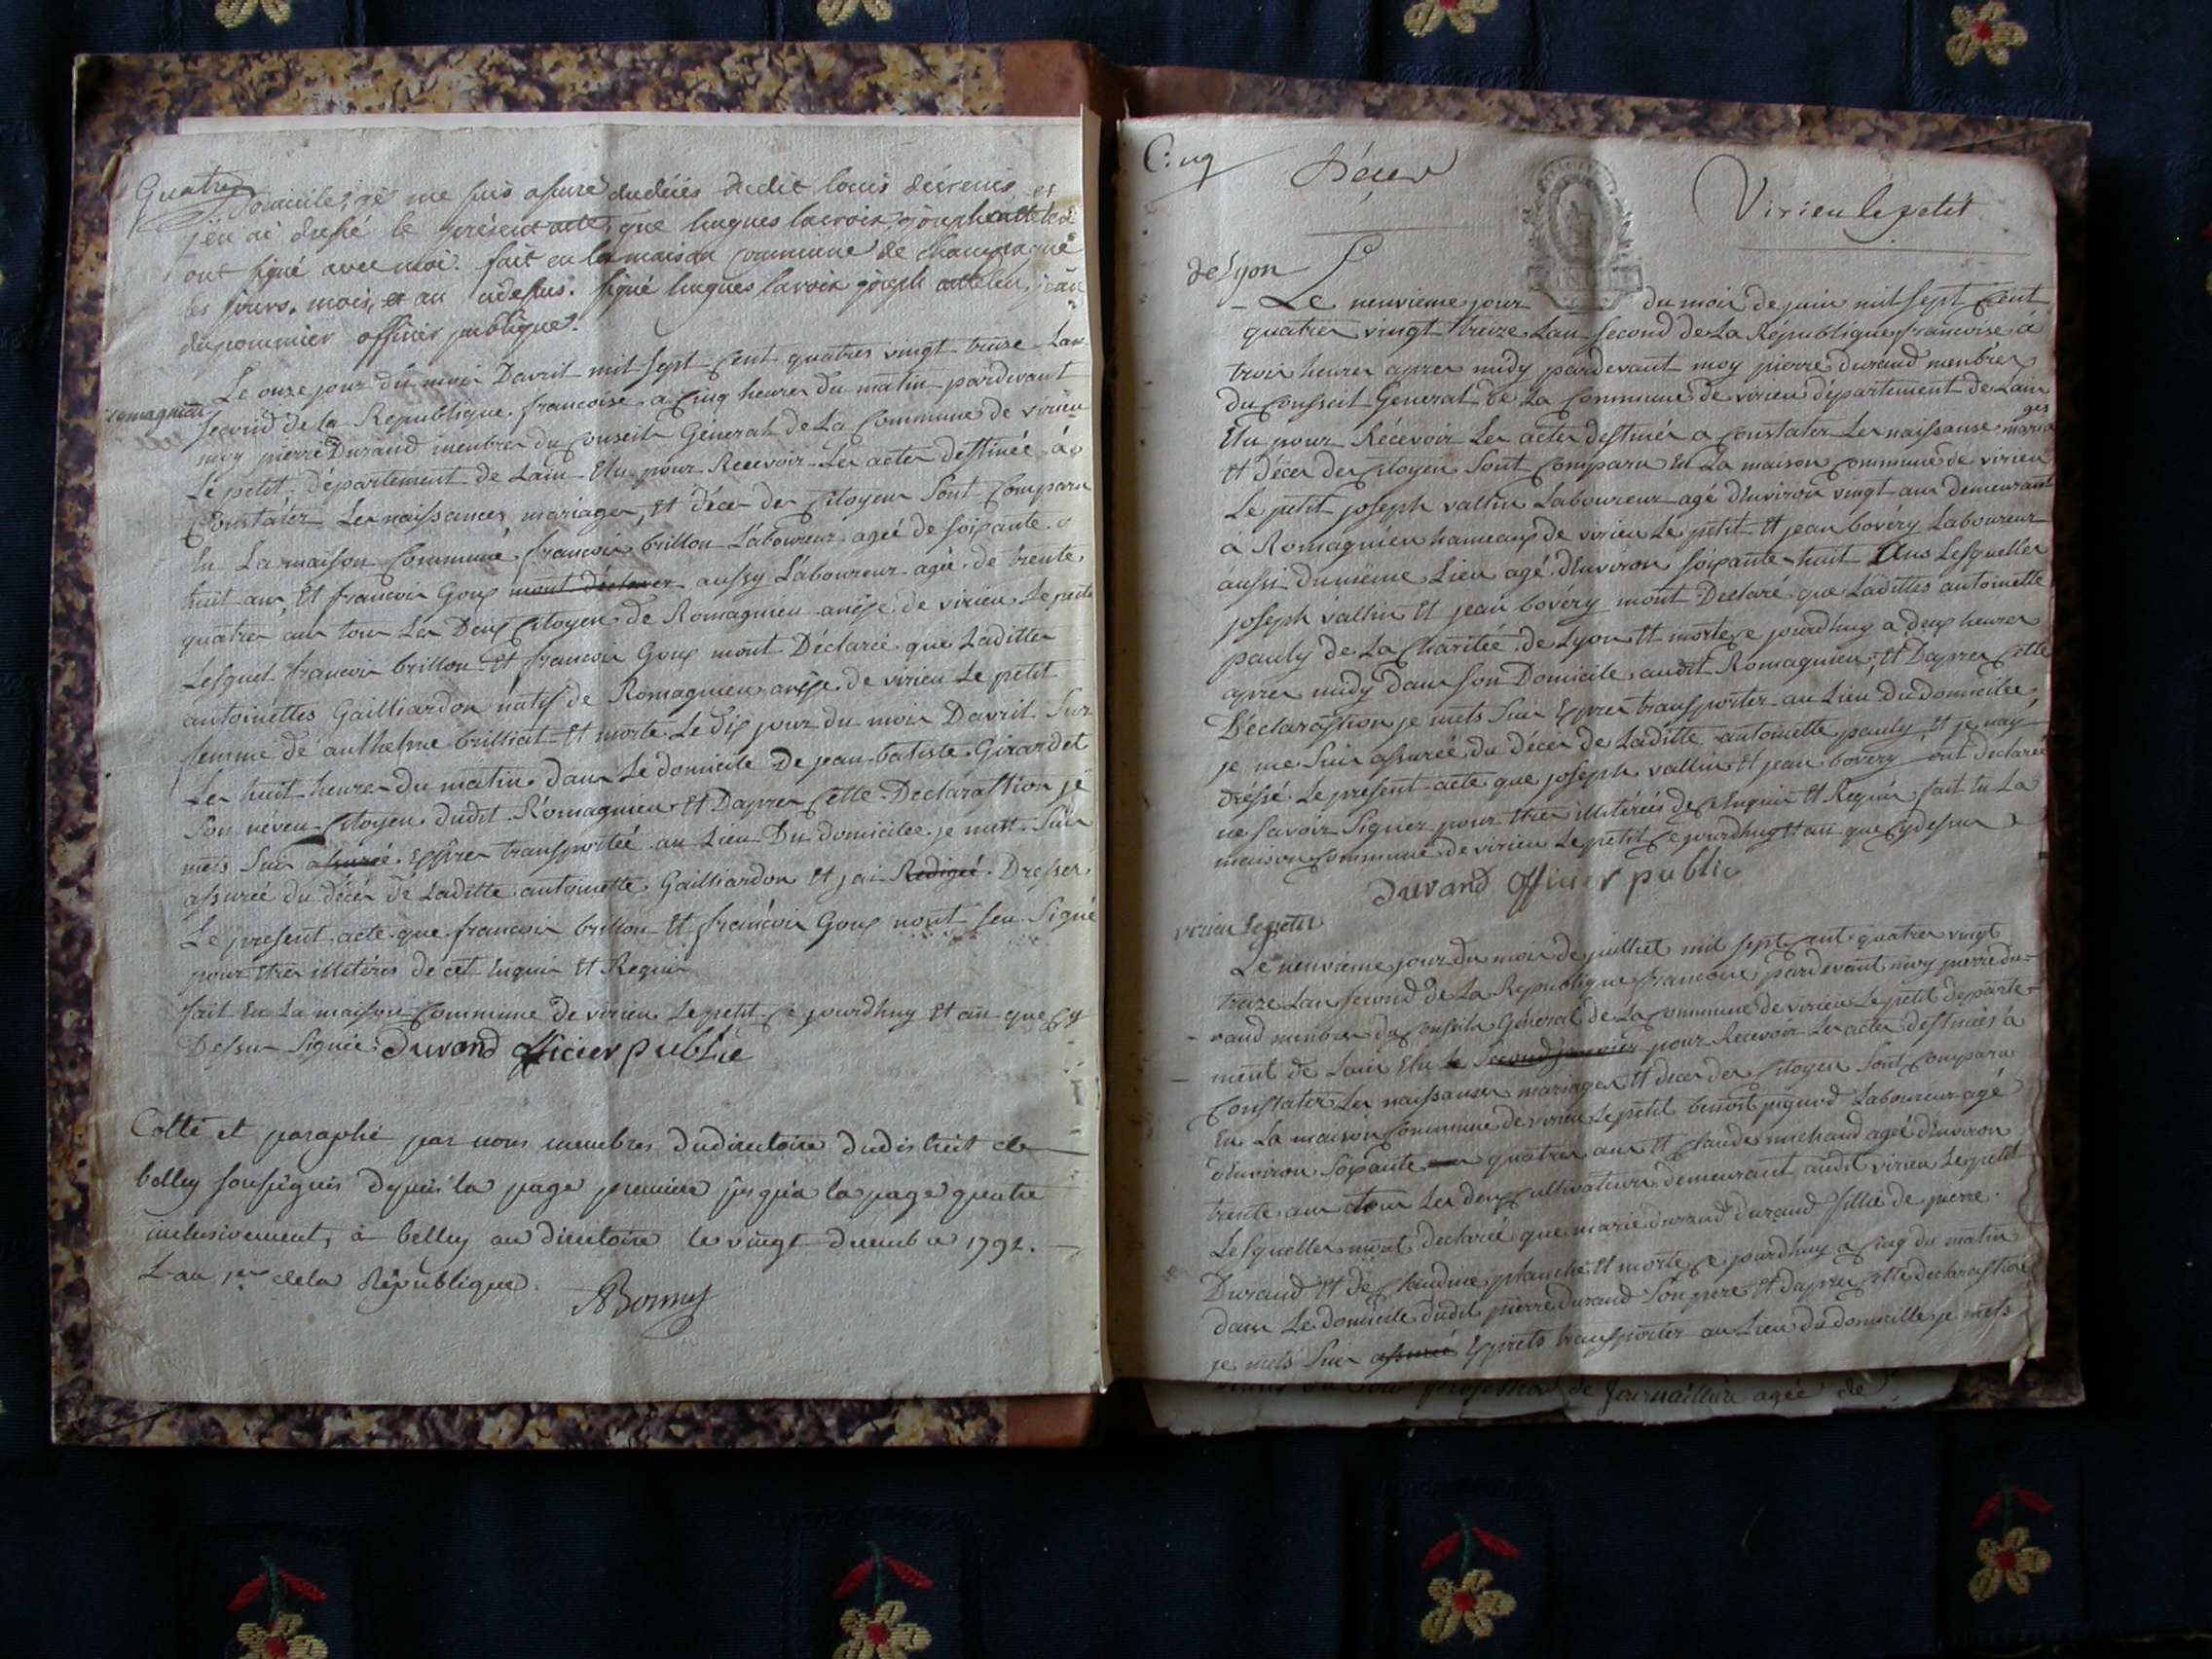 Quatre
Domicile, je me suis assuré du décès dudit louis
j'en ai dressé le présent acte, que hugues lacroix, joseph
ont signé avec moi. fait en la maison commune de Champagne
les jours, mois, et an cidessus. signé hugues lacroix joseph jean
dupommier officier publique.
romagnieu
Le onze jour du moir Davril mil sept Cent quatres vingt treize Lan
second de la Republique francoise a Cinq heures du matin pardevant
moy pierre Durand menbres du Conseils Géneral de La Commune de virieu
Le petit, département de Lain Elu pour Recevoir Les actes destinée a
Constater Les naissances, mariages, et décès des Citoyens Sont Comparu
En La maison Commune françois brillon Laboureur ageé de soixante
huit ans, Et francois Goux mont déclarer aussy Laboureur ageé de trente
quatres ans tous Les Deux Citoyens de Romagnieu anéxe de virieu Le petit
Lesquel francois brillon Et francois Goux mont Déclareé que Laditte
antoinettes Gailliardon natif de Romagnieu anéxe de virieu Le petit
femme de anthelme brilliat Et morte Le dix jour du mois Davril Sur
Les huit heures du matin dans Le domicile De jean batiste Girardet
Son néveu Citoyen dudit Romagnieu Et Dapres Cette Declarastion je
mets Suis assurée Expres transportée au Lieu Du domicilee je mest Suis
assurée du décès de Laditte antoinette Gailliardon Et jai Redigeé Dresser
Le present acte que francois brillon Et francois Goux nont seu Signé
pour Etres illitéres de cet Enquis Et Requis
fait En La maison Commune de virieu Le petit Ce jourdhuy Et an que Cy
Dessus Signée Durand officier publie
Cotté et paraphé par nous membres dudirectoire dudistrict de
belley soussignés depuis la page premiere jusqu'a la page quatre
inclusivement, à belley au directoire le vingt decembre 1792.
L'an 1er dela République.
Cinq
Décès
Virieu le petit
de Lyon
Le neuvieme jour du mois de juin mil sept Cent
quatres vingt treize Lan second de La République francoise à
trois heures apres midy pardevant moy pierre Durand menbres
du Conseil Général de La Commune de virieu département de Lain
Elu pour Récevoir Les actes destinés a Constater Les naissanse maria
ges
Et décès des Citoyens Sont Comparu En La maison Commune de virieu
Le petit joseph vallin Laboureur agé denviron vingt ans demeurant
à Romagnieu hameaux de virieu Lé petit Et jean bovéry Laboureur
aussi dumême Lieu agé denviron soixante huit Ans Lesquelles
joseph vallin Et jean bovéry mont Declaré que Ladittes antoinette
pauly de La Charitée de Lyon Et morte ce jourdhuy a deux heures
apres midy dans son Domicile audit Romagnieu, Et Dapres Cette
Déclarastion je mets Suis Expres transporter au Lieu du domicilee
je me Suis assurée du décès de Laditte antoinette pauly Et je nay
dréssé Le present acte que joseph vallin Et jean bovery ont declareé
ne savoir Signer pour Etres illitérés de ce Enquis Et Requis fait En La
maison Commune de virieu Le petit Ce jourdhuy Et an que Cy dessus
Durand officier public
virieu le petit
Le neuvieme jour du mois de juillet mil sept Cent quatres vingt
treize Lan second de La Republique francoise pardevant moy pierre du=
rand menbres du Conseils Géneral de La Commune de virieu Le petit departe=
ment de Lain Elu Le Second janvier pour Recevoir Les actes destinées a
Constater Les naissanses mariages Et deces des Citoyens Sont Comparu
En La maison Commune de virieu Le petit benoit Laboureur agé
denviron soixante quatres ans Et Claude michaud ageé denviron
trente ans tous Les deux Cultivateurs demeurant audit virieu Le petit
Lesquelles mont declareé que marie durand durand fillie de pierre
Durand Et de Claudine planche Et morte Ce jourdhuy a Cinq du matin
dans Le domicile dudit pierre Durand Son pere Et dapres Cette declarastion
je mets Suis assurée Exprets transporter au Lieu du domicille je mets
profession de Journailliere agée de